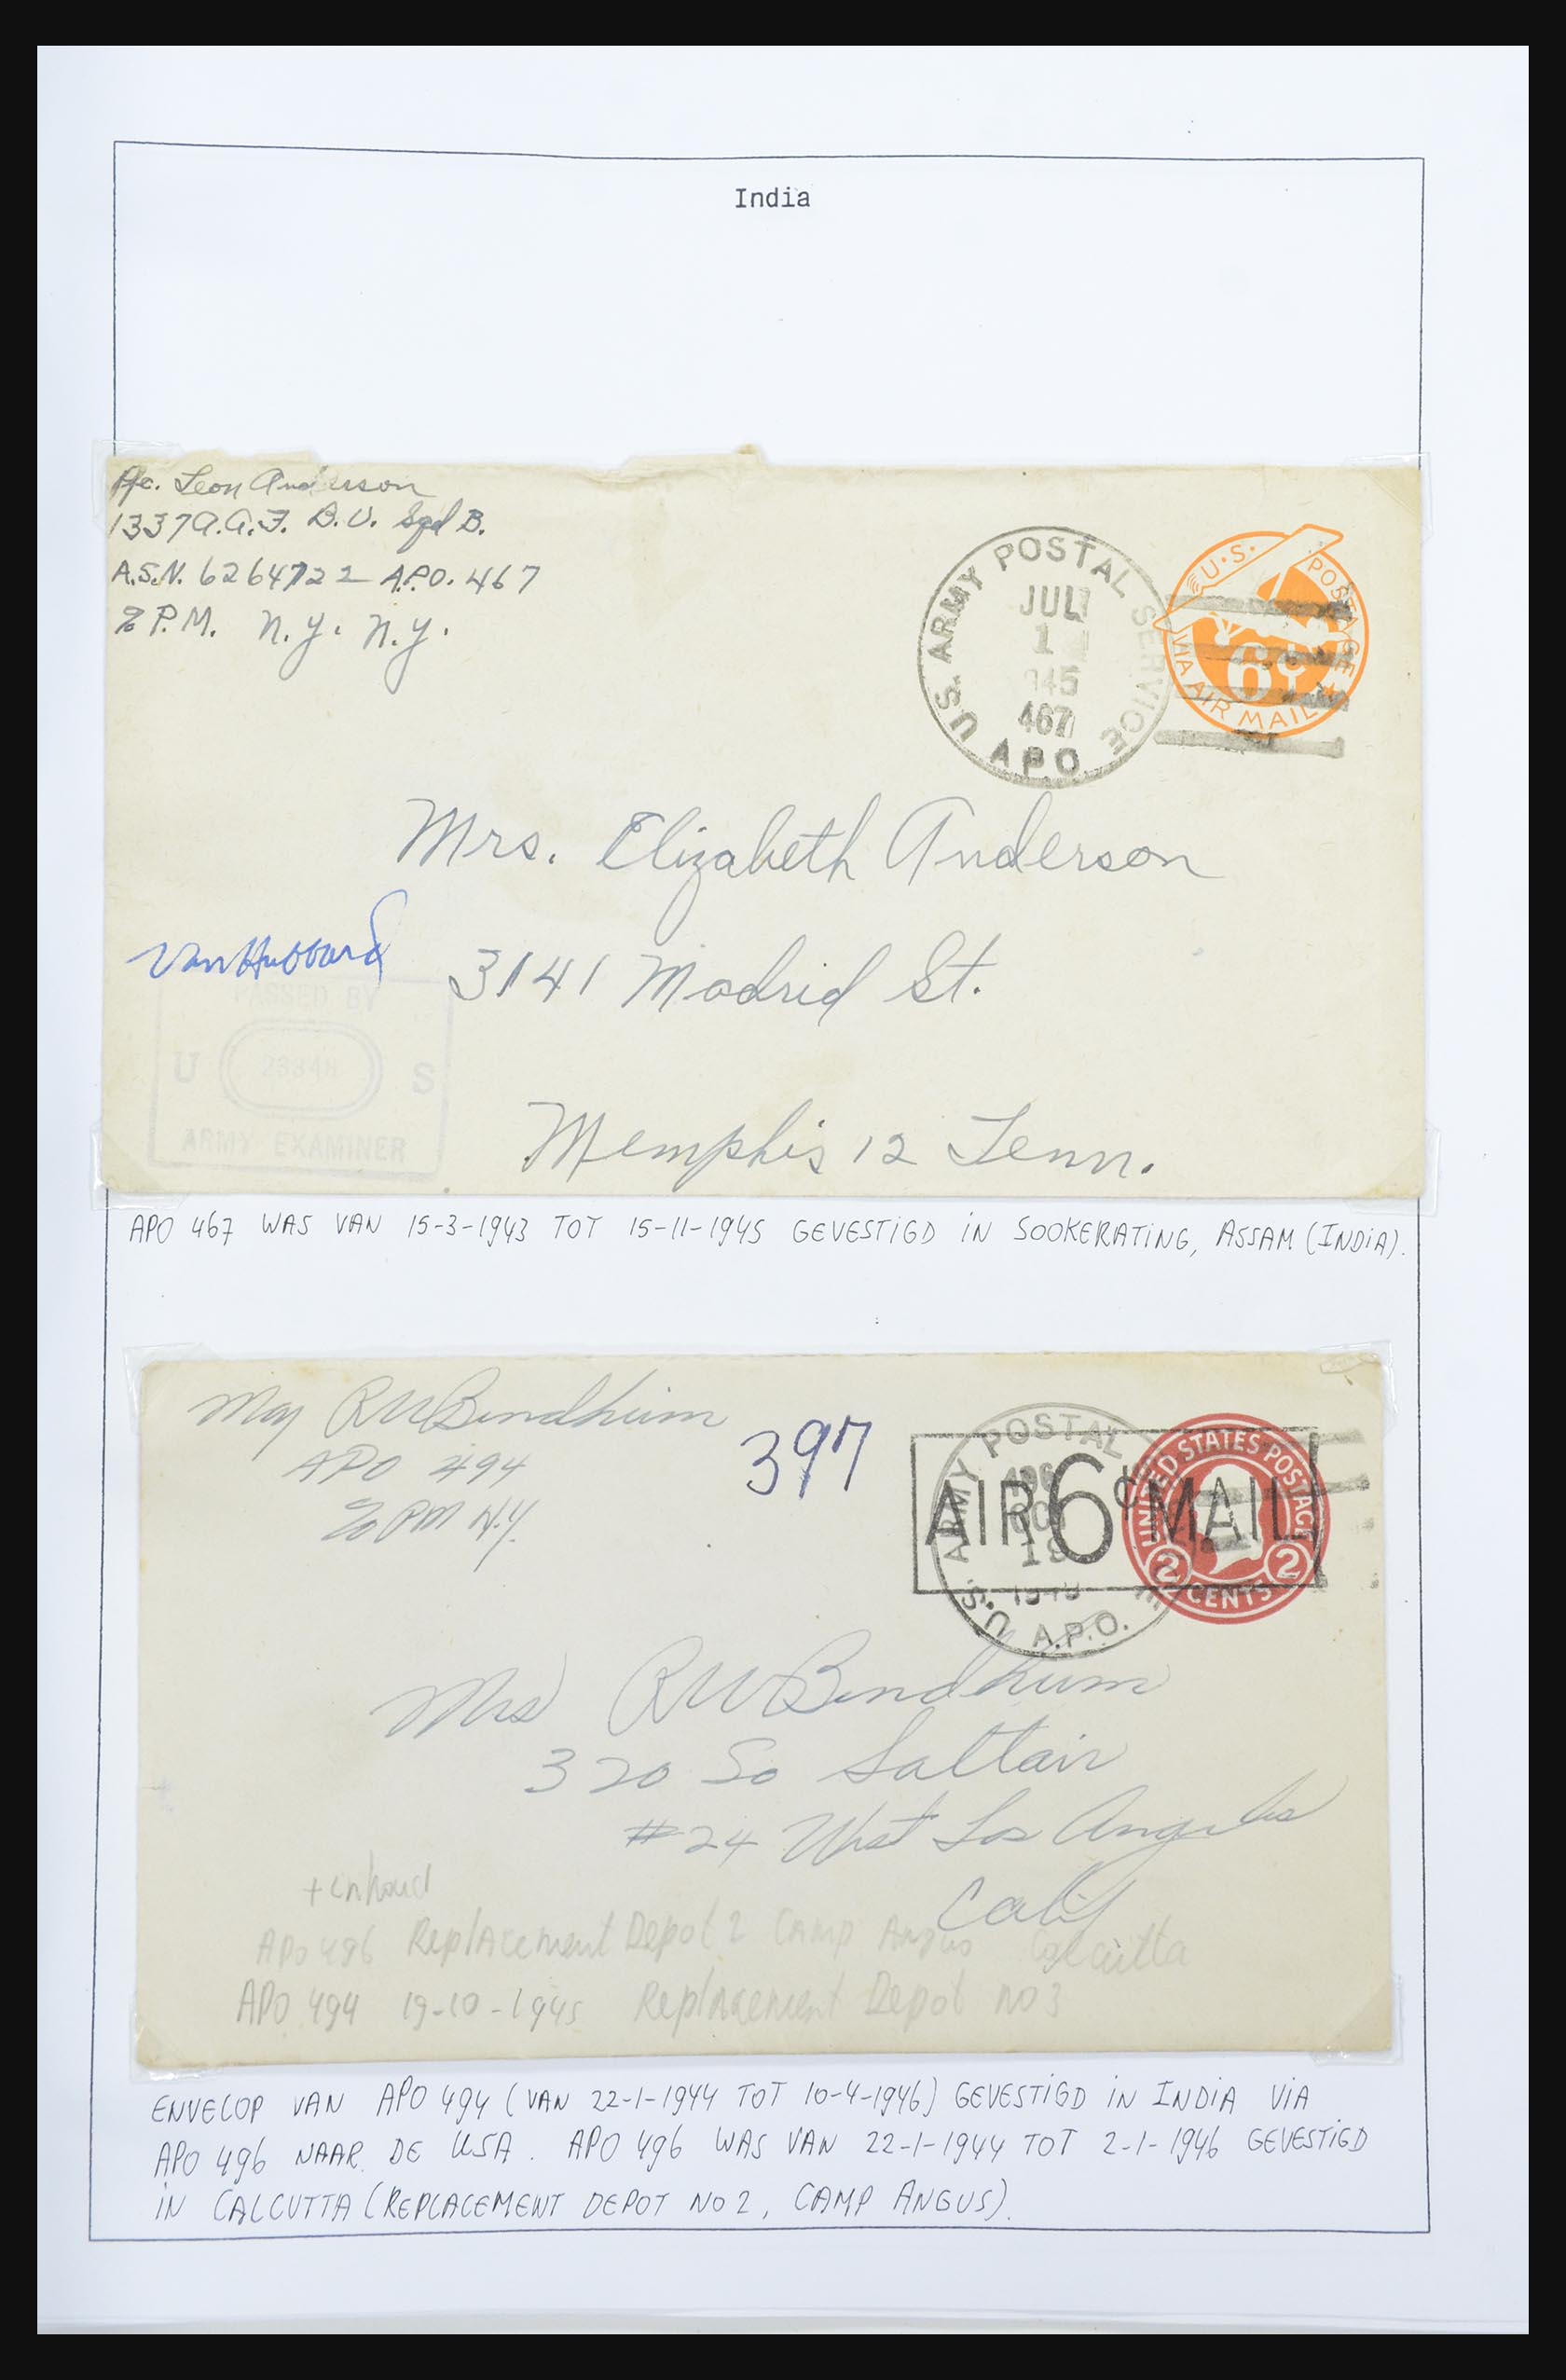 India
Pfc. Leon Anderson
1337 A.A.F. B.U. Sqd B.
A.S.N. 6264722 A.P.O. 467
% P.M. N.Y. N.Y.
U.S. ARMY POSTAL SERVICE
JUL
1
945
467
A P O
U.S. POSTAGE
6¢
VIA AIR MAIL
Mrs. Elizabeth Anderson
Van Hubbard
3141 Madrid St.
Memphis 12 Tenn.
PASSED BY
U S
ARMY EXAMINER
APO 467 WAS VAN 15-3-1943 TOT 15-11-1945 GEVESTIGD IN SOOKERATING, ASSAM (INDIA).
Maj RW Bendheim
APO 494
% PM N.Y.
397
U.S. ARMY POSTAL
496
19
A.P.O.
AIR 6¢ MAIL
UNITED STATES POSTAGE
2 CENTS 2
Mrs RW Bendheim
320 So Saltair
#24 West Los Angeles
Calif
+ inhoud
APO 496 Replacement Depot 2 Camp Angus Calcutta
APO 494 19-10-1945 Replacement Depot no 3
ENVELOP VAN APO 494 (VAN 22-1-1944 TOT 10-4-1946) GEVESTIGD IN INDIA VIA
APO 496 NAAR DE USA. APO 496 WAS VAN 22-1-1944 TOT 2-1-1946 GEVESTIGD
IN CALCUTTA (REPLACEMENT DEPOT NO 2, CAMP ANGUS).